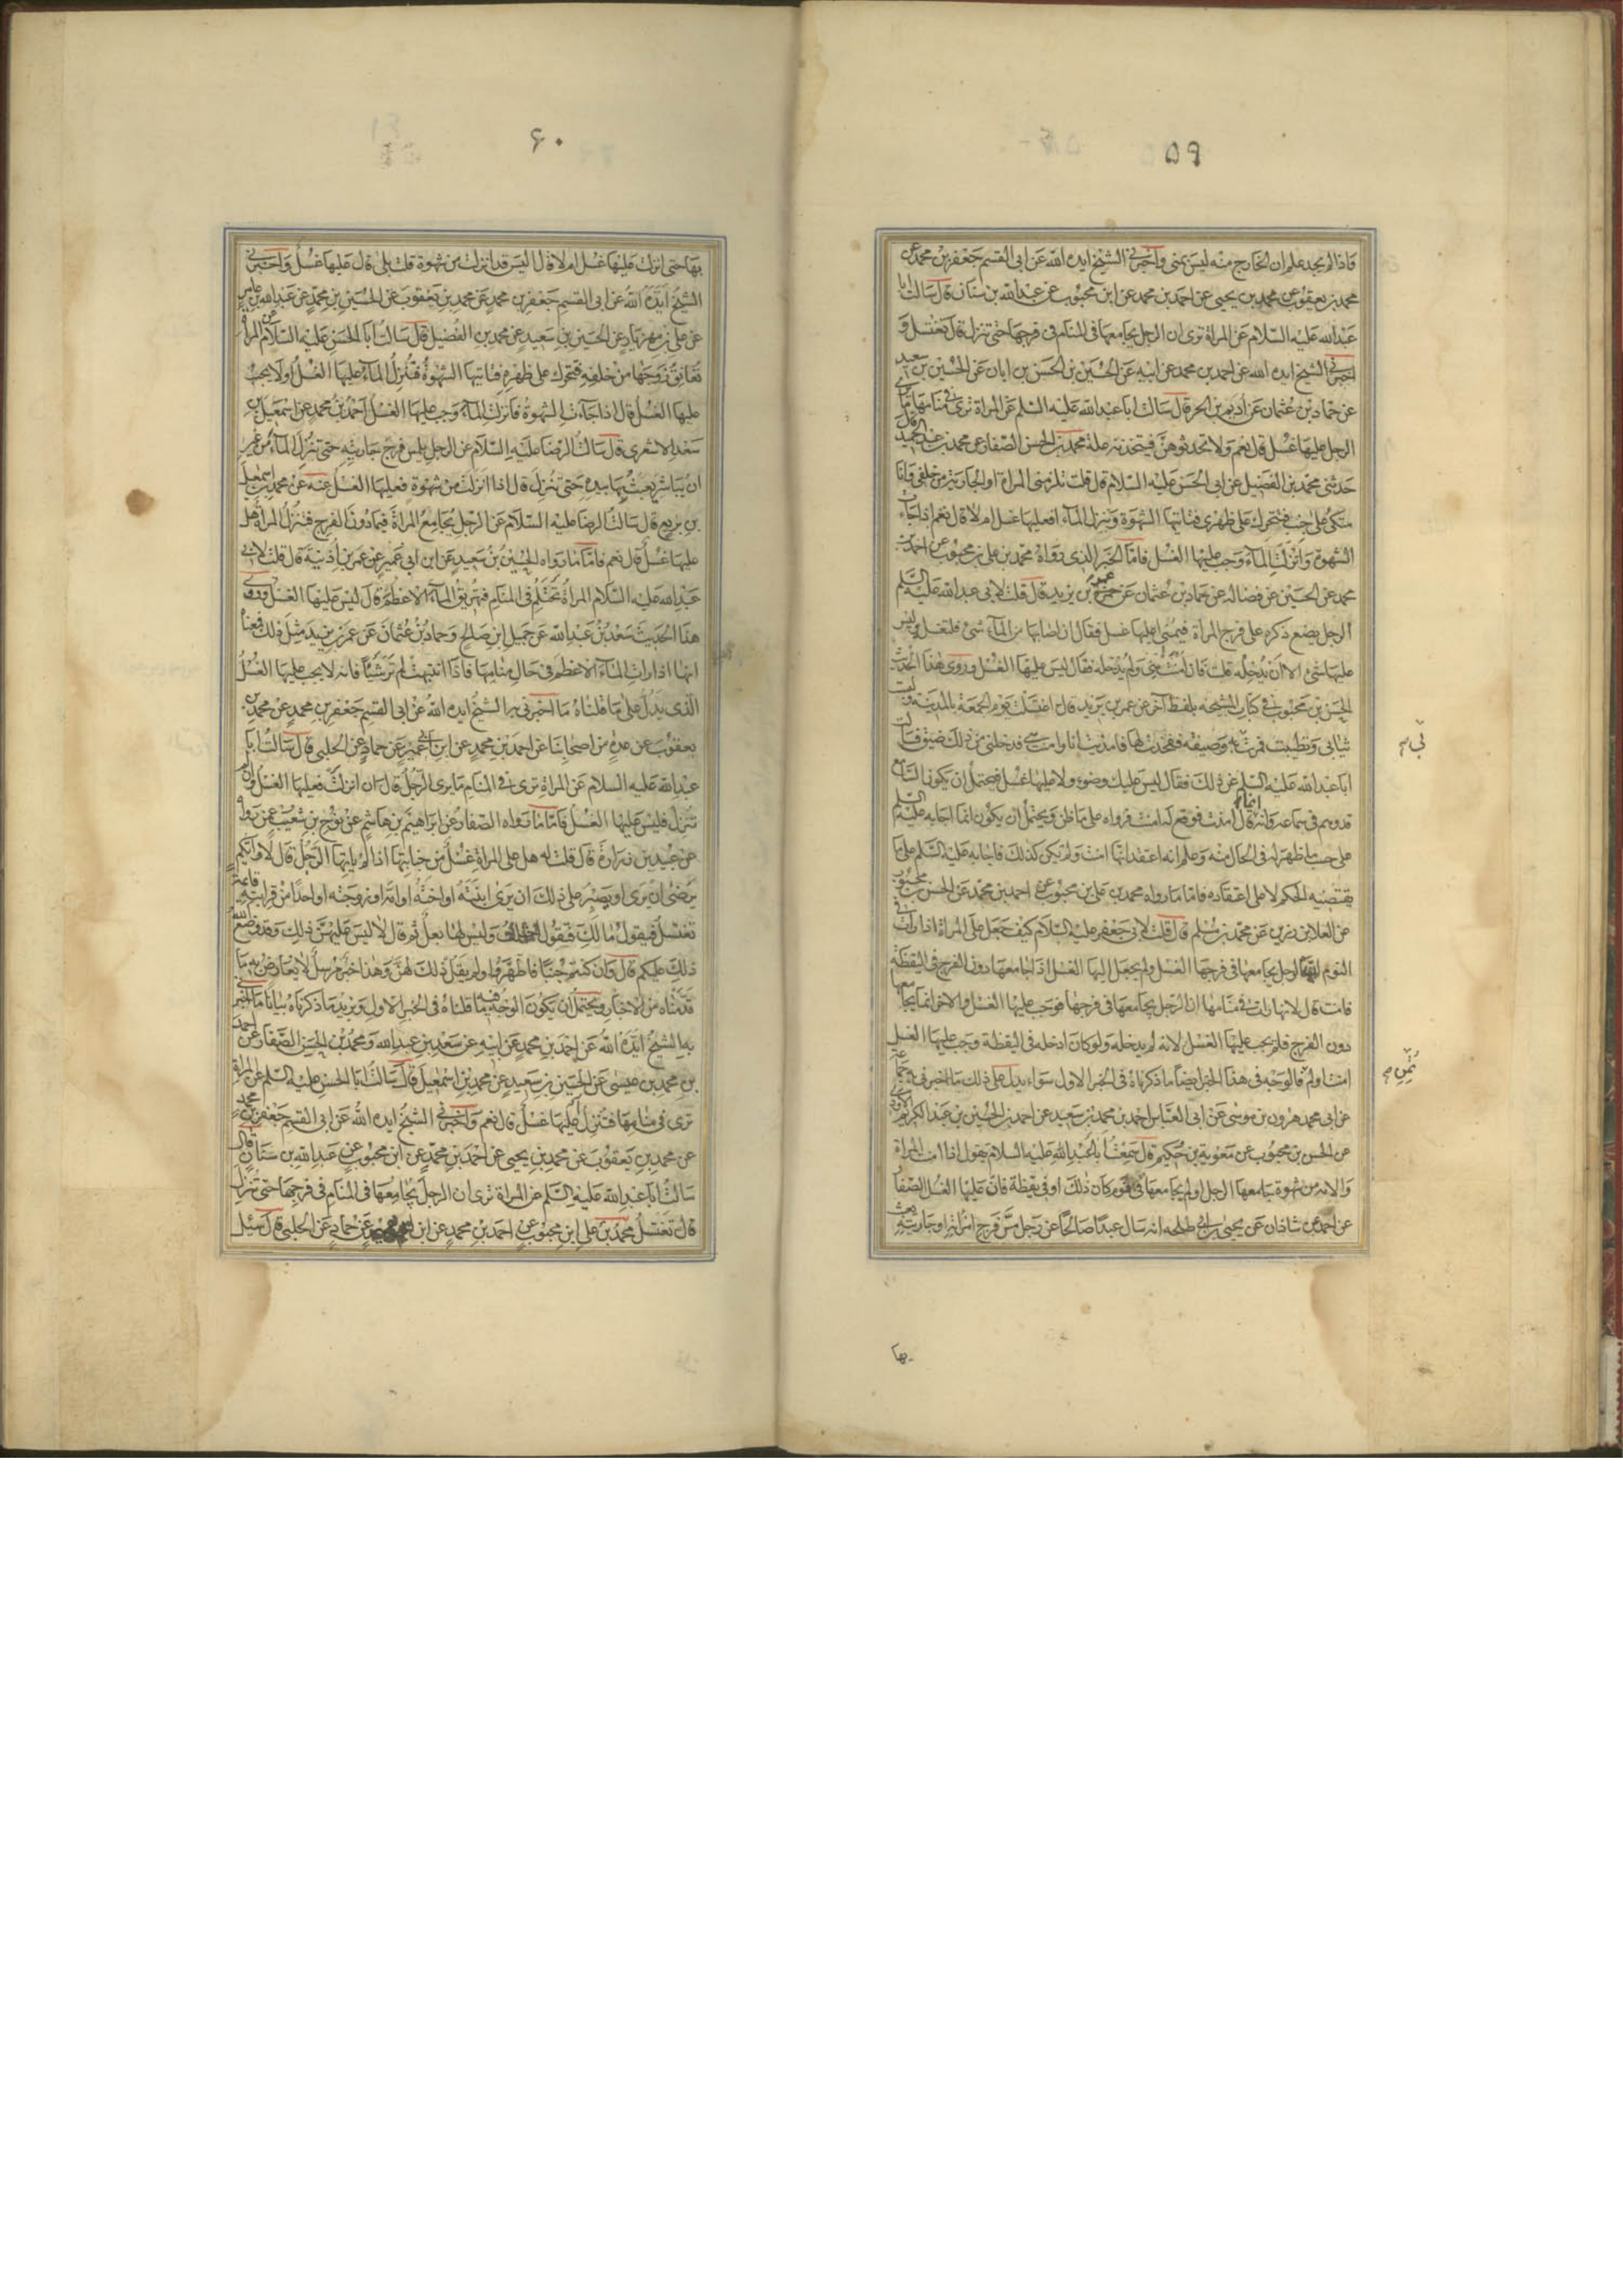 ۵۹
فاذا لم يجد علم ان الخارج منه ليس بمنى واخبرنى الشيخ ايده الله عن ابى القسم جعفر بن محمد عن
محمد بن يعقوب عن محمد بن يحيى عن احمد بن محمد عن ابن محبوب عن عبدالله بن سنان قال سالت ابا
عبدالله عليه السلام عن المراة ترى ان الرجل يجامعها فى المنام فى فرجها حتى تنزل قال تغتسل و
اخبرنى الشيخ ايده الله عن احمد بن محمد عن ابيه عن الحسين بن الحسن بن ابان عن الحسين بن سعيد
عن حماد بن عثمان عن اديم بن الحر قال سالت ابا عبدالله عليه السلم عن المراة ترى فى منامها ما يرى
الرجل عليها غسل قال نعم ولا تحدثوهن فيتخذنه علة محمد بن الحسن الصفار عن محمد بن عبد الحميد قال
حدثنى محمد بن الفضيل عن ابى الحسن عليه السلام قال قلت تلزمنى المراة او الجارية من خلفى وانا
متكئ على جنب فتتحرك على ظهرى فتاتيها الشهوة وتنزل المآء افعليها غسل ام لا قال نعم اذا جاءت
الشهوة وانزلت المآء وجب عليها الغسل فاما الخبر الذى رواه محمد بن على بن محبوب عن احمد بن
محمد عن الحسين عن فضاله عن حماد بن عثمان عن عمر بن يزيد قال قلت لابى عبدالله عليه السلم
الرجل يضع ذكره على فرج المراة فيمنى اعليها غسل فقال ان اصابها من المآء شئ فلتغسله وليس
عليها شئ الا ان يدخله قلت فان امنت هى ولم يدخله فقال ليس عليها الغسل وروى هذا الحديث
الحسن بن محبوب فى كتاب المشيخه بلفظ آخر عن عمر بن يزيد قال اغتسلت يوم الجمعة بالمدينة ولبست
ثيابى وتطيبت فمرت بى وصيفه ففخذت لها فامذيت انا وامنت هى فدخلنى من ذلك ضيق فسالت
ابا عبدالله عليه السلم عن ذلك فقال ليس عليك وضوء ولا عليها غسل فيحتمل ان يكون السامع
قد وهم فى سماعه وانه انما قال امذت فوقع له امنت فرواه على ما ظن ويحتمل ان يكون انما اجابه عليه السلم
على حسب ما ظهر له فى الحال منه وعلم انه اعتقد انها امنت ولم تكن كذلك فاجابه عليه السلم على ما
يقتضيه الحكم لا على اعتقاده فاما ما رواه محمد بن على بن محبوب عن احمد بن محمد عن الحسن بن محبوب
عن العلا بن رزين عن محمد بن مسلم قال قلت لابى جعفر عليه السلام كيف جعل على المراة اذا رات فى
النوم الرجل يجامعها فى فرجها الغسل ولم يجعل اليها الغسل اذا جامعها دون الفرج فى اليقظة
فامنت قال لانها رات فى منامها ان الرجل يجامعها فى فرجها فوجب عليها الغسل والاخر انما يجامعها
دون الفرج فلم يجب عليها الغسل لانه لم يدخله ولو كان ادخله فى اليقظة وجب عليها الغسل
امنت او لم فالوجه فى هذا الخبر ايضا ما ذكرناه فى الخبر الاول سواء يدل على ذلك ما اخبرنى به جماعة
عن ابى محمد هرون بن موسى عن ابى العباس احمد بن محمد بن سعيد عن احمد بن الحسين بن عبد الكريم الاودى
عن الحسن بن محبوب عن معوية بن حكيم قال سمعت ابا عبدالله عليه السلام يقول اذا امنت المراة
والامه من شهوة جامعها الرجل او لم يجامعها فى نوم كان ذلك او فى يقظة فان عليها الغسل الصفار
عن احمد بن شاذان عن يحيى بن ابى طلحه انه سال عبدا صالحا عن رجل مس فرج امراته او جاريته يعبث
بى
تمن
بها
۶۰
بها حتى انزلت عليها غسل ام لا قال اليس قد انزلت من شهوة قلت بلى قال عليها غسل واخبرنى
الشيخ ايده الله عن ابى القسم جعفر بن محمد عن محمد بن يعقوب عن الحسين بن محمد عن عبدالله بن عامر
عن على بن مهزيار عن الحسين بن سعيد عن محمد بن الفضيل قال سالت ابا الحسن عليه السلام عن المراة
تعانق زوجها من خلفه فتحرك على ظهره فتاتيها الشهوة فتنزل المآء عليها الغسل او لا يجب
عليها الغسل قال اذا جآءت الشهوة فانزلت المآء وجب عليها الغسل احمد بن محمد عن اسمعيل بن
سعد الاشعرى قال سالت الرضا عليه السلام عن الرجل يلمس فرج جاريته حتى تنزل المآء من غير
ان يباشر يعبث بها بيده حتى تنزل قال اذا انزلت من شهوة فعليها الغسل عنه عن محمد بن اسمعيل
بن بزيع قال سالت الرضا عليه السلام عن الرجل يجامع المراة فيما دون الفرج فتنزل المراة هل
عليها غسل قال نعم فاما ما رواه الحسين بن سعيد عن ابن ابى عمير عن عمر بن اذينة قال قلت لابى
عبدالله عليه السلام المراة تحتلم فى المنام فتهريق المآء الاعظم قال ليس عليها الغسل وروى
هذا الحديث سعد بن عبدالله عن جميل ابن صالح وحماد بن عثمان عن عمر بن يزيد مثل ذلك فمعناه
انها اذا رات المآء الاعظم فى حال منامها فاذا انتبهت لم تر شيئا فانه لا يجب عليها الغسل
الذى يدل على ما قلناه ما اخبرنى به الشيخ ايده الله عن ابى القسم جعفر بن محمد عن محمد بن
يعقوب عن عدة من اصحابنا عن احمد بن محمد عن ابن ابى عمير عن حماد عن الحلبى قال سالت ابا
عبدالله عليه السلام عن المراة ترى فى المنام ما يرى الرجل قال ان انزلت فعليها الغسل وان لم
تنزل فليس عليها الغسل فاما ما رواه الصفار عن ابراهيم بن هاشم عن نوح بن شعيب عمن رواه
عن عبيد بن زرارة قال قلت له هل على المراة غسل من جنابتها اذا لم ياتها الرجل قال لا وايكم
يرضى ان يرى او يصبر على ذلك ان يرى ابنته او اخته او امه او زوجته او احدا من قرابته قائمة
تغتسل فيقول ما لك فتقول احتلمت وليس لها بعل ثم قال لا ليس عليهن ذلك وقد وضع الله
ذلك عليكم قال وان كنتم جنبا فاطهروا ولم يقل ذلك لهن وهذا خبر مرسل لا يعارض به ما
قدمناه من الاخبار ويحتمل ان يكون الوجه فيه ما قلناه فى الخبر الاول ويزيد ما ذكرناه بيانا ما اخبرنى
به الشيخ ايده الله عن احمد بن محمد عن ابيه عن سعد بن عبدالله ومحمد بن الحسن الصفار عن احمد
بن محمد بن عيسى عن الحسين بن سعيد عن محمد بن اسمعيل قال سالت ابا الحسن عليه السلم عن المراة
ترى فى منامها فتنزل اعليها غسل قال نعم واخبرنى الشيخ ايده الله عن ابى القسم جعفر بن محمد
عن محمد بن يعقوب عن محمد بن يحيى عن احمد بن محمد عن ابن محبوب عن عبدالله بن سنان قال
سالت ابا عبدالله عليه السلم عن المراة ترى ان الرجل يجامعها فى المنام فى فرجها حتى تنزل
قال تغتسل محمد بن على ابن محبوب عن احمد بن محمد عن ابن ابى عمير عن حماد عن الحلبى قال سئل